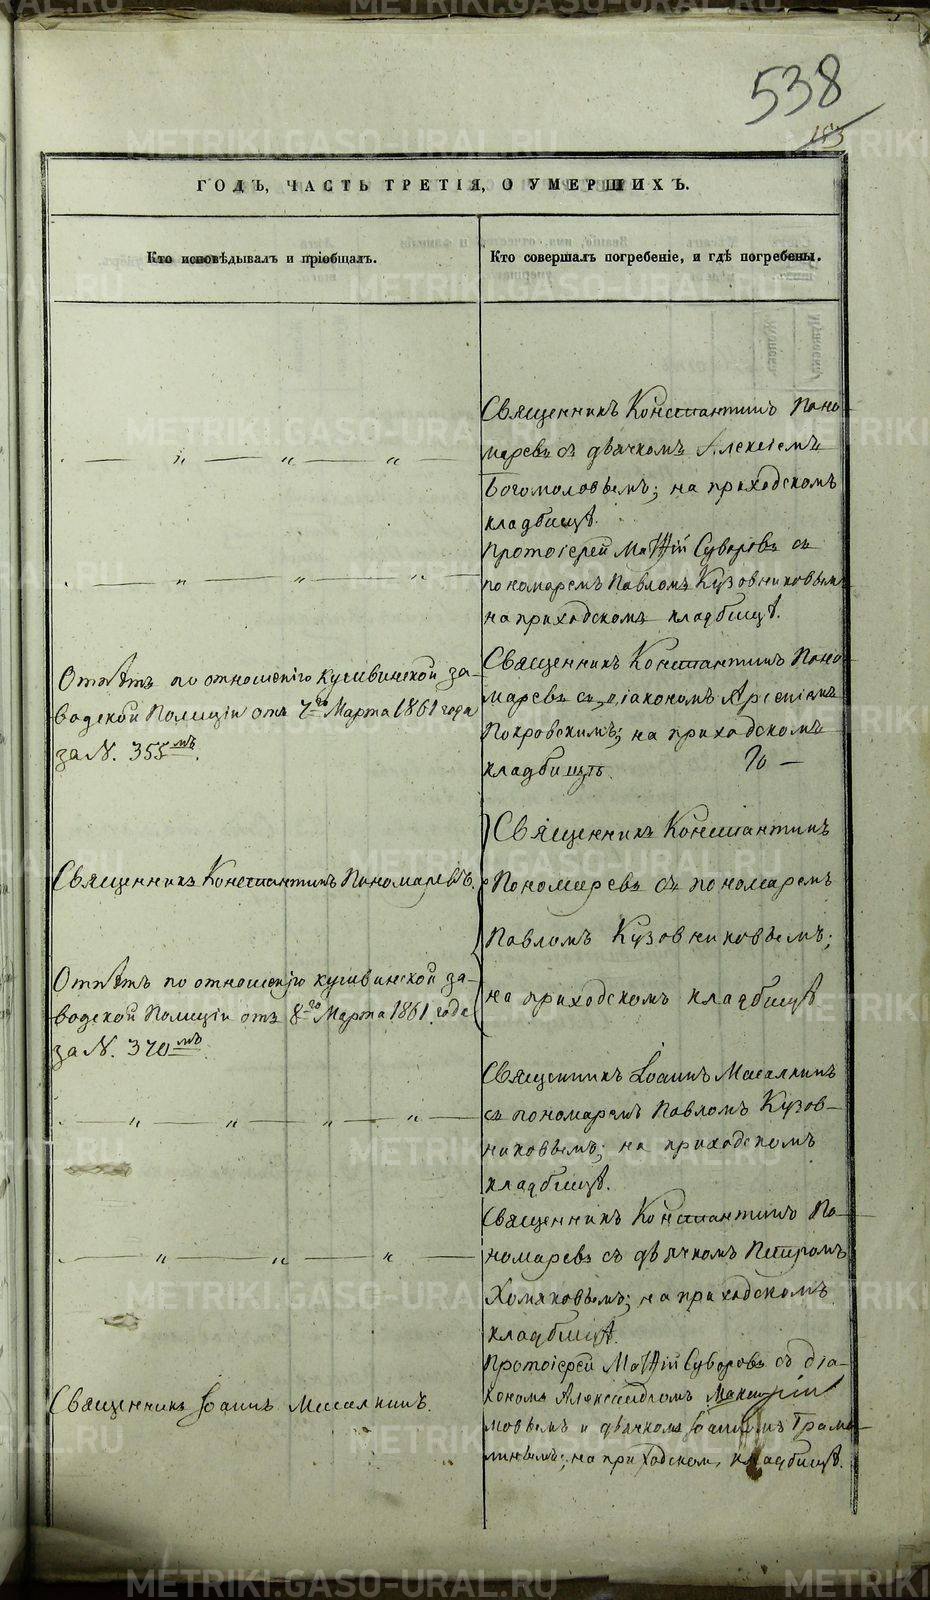 538
183
ГОДЪ, ЧАСТЬ ТРЕТІЯ, О УМЕРШИХЪ.
Кто исповѣдывалъ и пріобщалъ.
Кто совершалъ погребеніе, и гдѣ погребены.
Священникъ Константинъ Поно-
маревъ съ дьячкомъ Алексіемъ
Богомоловымъ; на приходскомъ
кладбищѣ.
Протоіерей Матѳій Суворовъ съ
пономаремъ Павломъ Кузовниковымъ
на приходскомъ кладбищѣ.
Отпѣтъ по отношенію кушвинской за-
водской Полиціи отъ 7го Марта 1861 года
за N. 355мъ.
Священникъ Константинъ Поно-
маревъ съ діакономъ Арсеніемъ
Покровскимъ; на приходскомъ
кладбищѣ.
Священникъ Константинъ Пономаревъ.
Священникъ Константинъ
Пономаревъ съ пономаремъ
Павломъ Кузовниковымъ;
на приходскомъ кладбищѣ
Отпѣтъ по отношенію кушвинской за-
водской Полиціи отъ 8го Марта 1861 года
за N. 370мъ.
Священникъ Іоаннъ Масалкинъ
съ пономаремъ Павломъ Кузов-
никовымъ; на приходскомъ
кладбищѣ.
Священникъ Константинъ По-
номаревъ съ дьячкомъ Петромъ
Хомяковымъ; на приходскомъ
кладбищѣ.
Священникъ Іоаннъ Масалкинъ.
Протоіерей Матѳій Суворовъ съ діа-
кономъ Александромъ
мовымъ и дьячкомъ Іоанномъ Грама-
линымъ; на приходском, кладбищѣ.
METRIKI.GASO-URAL.RU